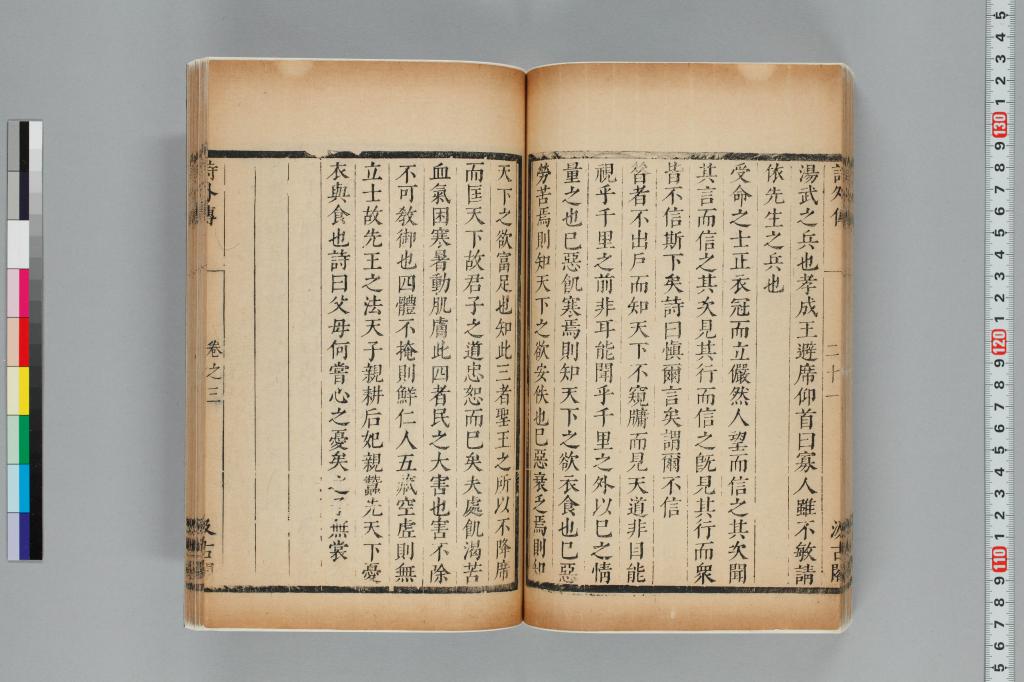 湯武之兵也孝成王避席仰首曰寡人雖不敏請
依先生之兵也
受命之士正衣冠而立儼然人望而信之其次聞
其言而信之其次見其行而信之旣見其行而衆
皆不信斯下矣詩曰愼爾言矣謂爾不信
昝者不出戶而知天下不窺牖而見天道非目能
視乎千里之前非耳能聞乎千里之外以已之情
量之也已惡飢寒焉則知天下之欲衣食也已惡
勞苦焉則知天下之欲安佚也已惡衰乏焉則知
天下之欲富足也知此三者聖王之所以不降席
而匡天下故君子之道忠恕而已矣夫處飢渴苦
血氣困寒暑動肌膚此四者民之大害也害不除
不可敎御也四體不掩則鮮仁人五藏空虛則無
立士故先王之法天子親耕后妃親蠶先天下憂
衣與食也詩曰父母何嘗心之憂矣之子無裳
詩外傳
卷之三
二十一
汲古閣
130
120
110